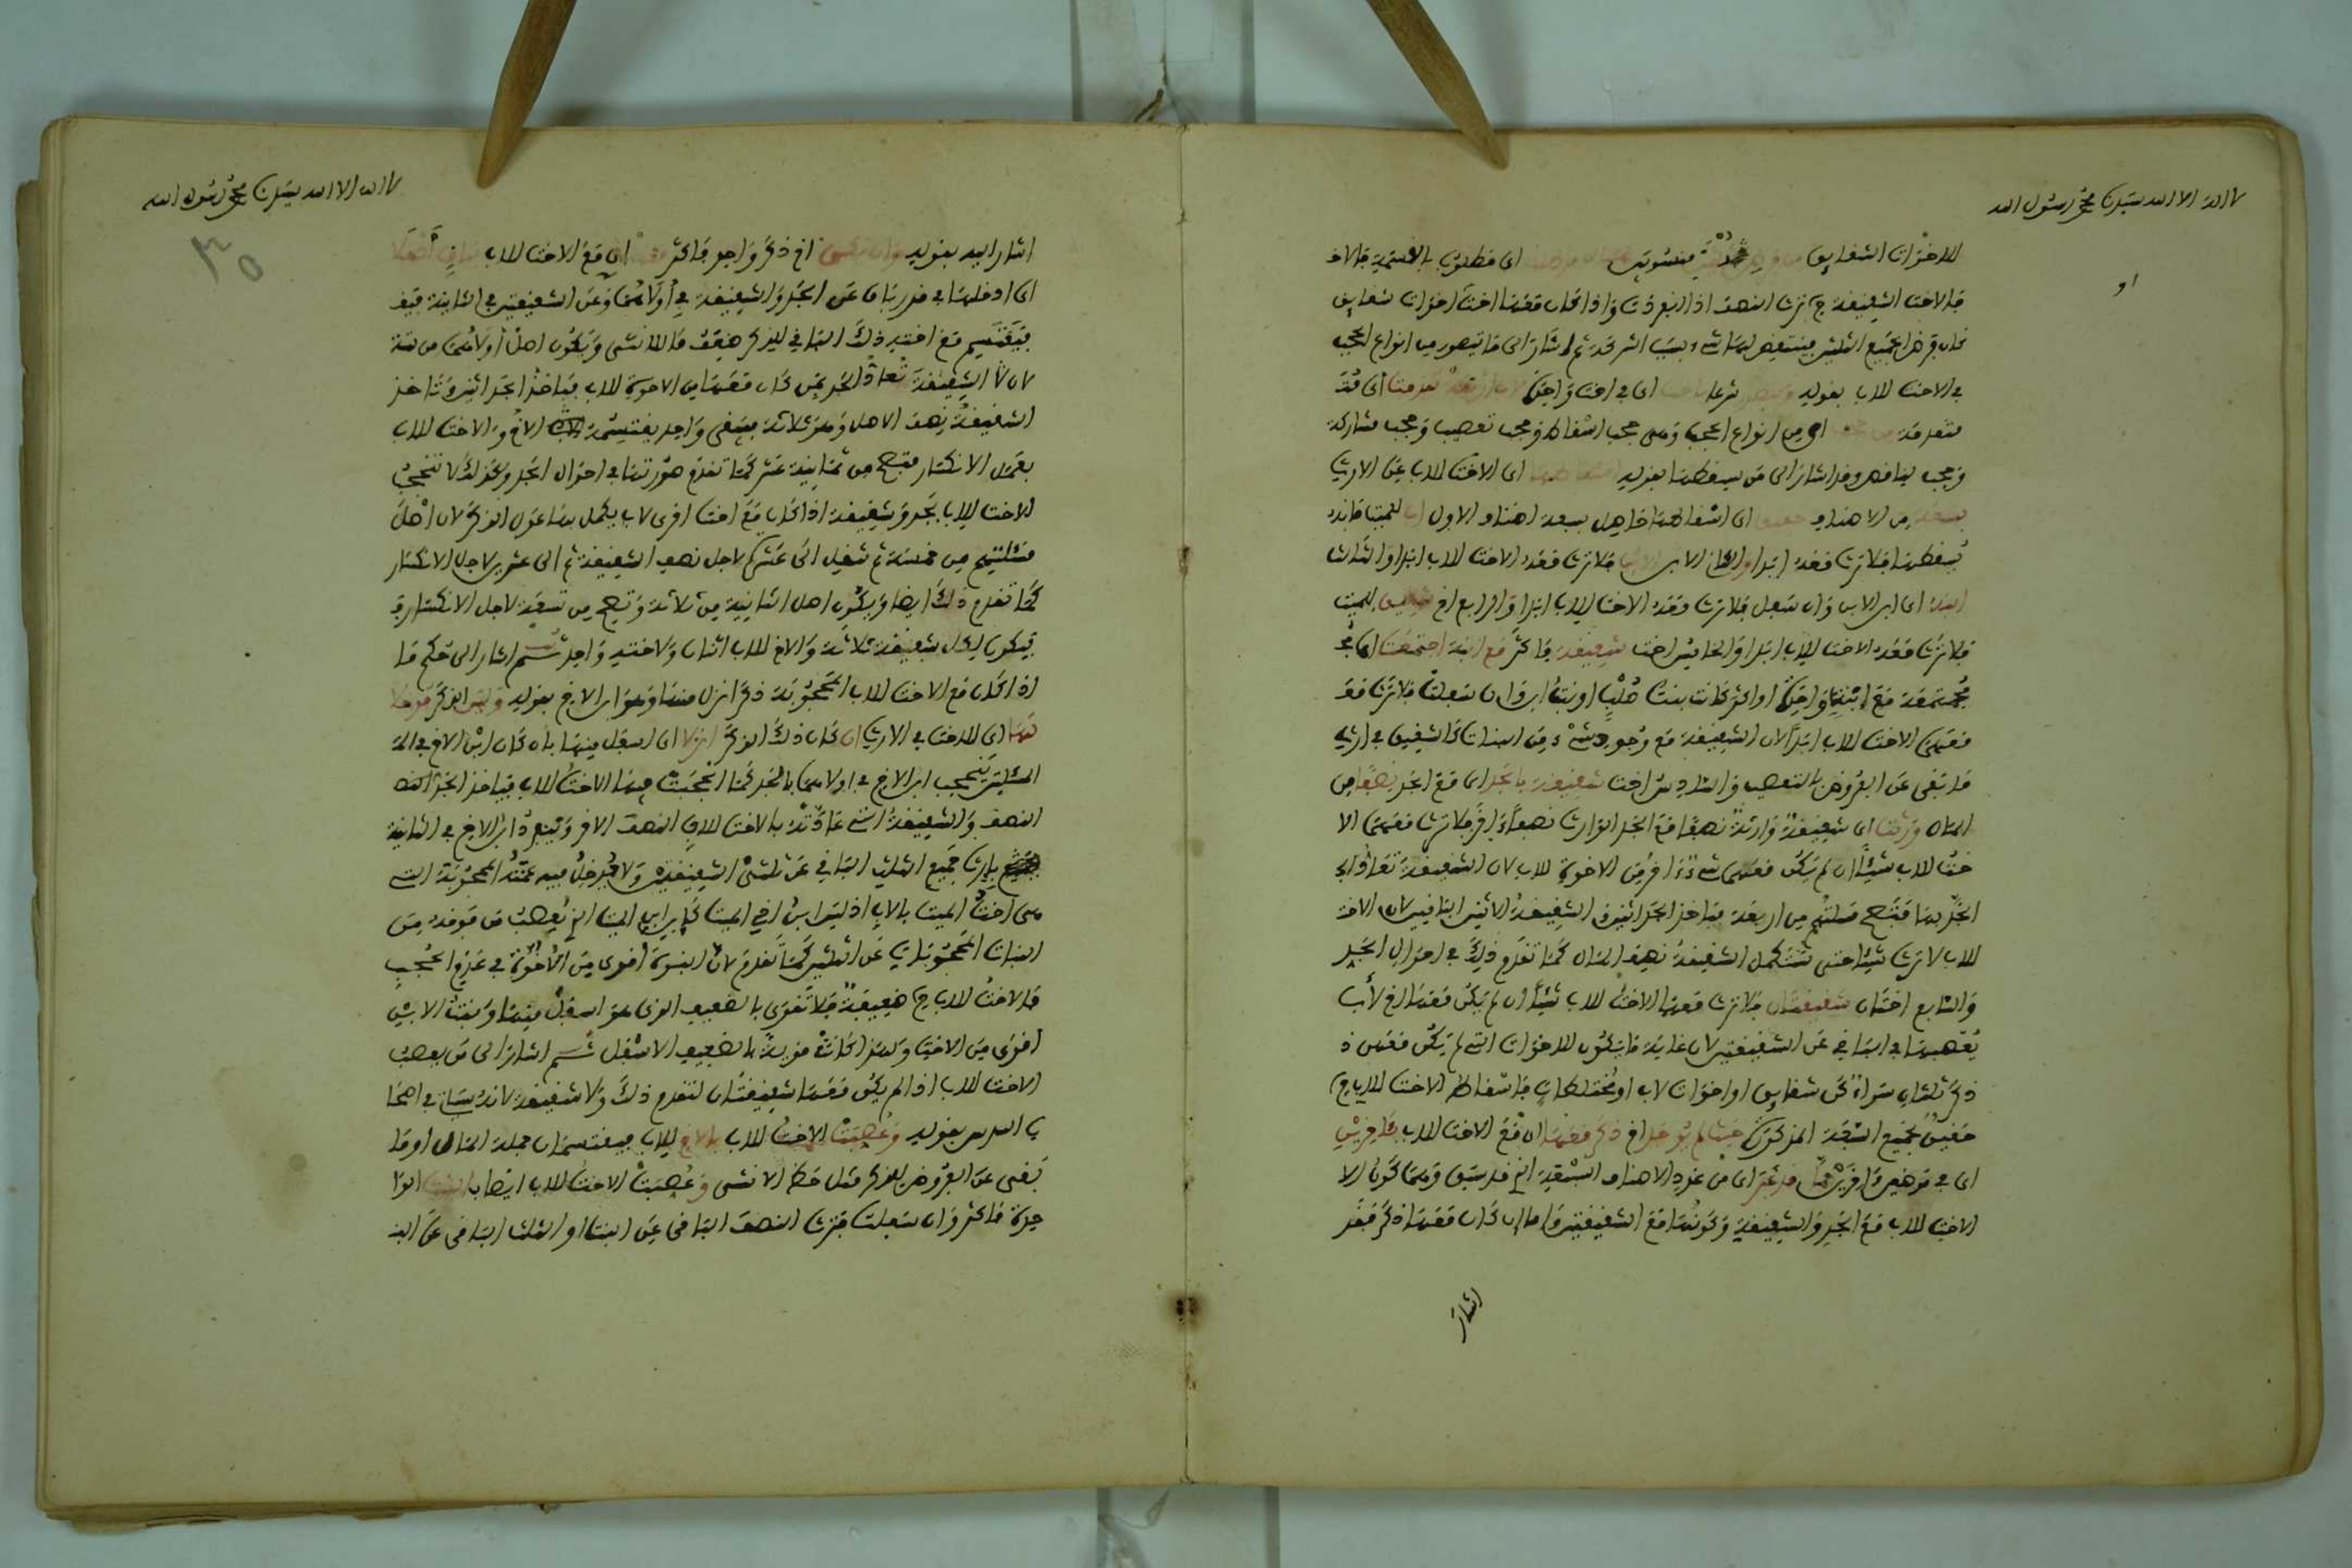 لا اله الا الله سيدنا محمد رسول الله
او
للاخوات الشقايق منسوبتين اى مطلوب بالقسمة فالاخ
فالاخت الشقيقة ح ترث النصف اذا انفردت واذا كان معها اخت اخوات شقايق
كان فرض الجميع الثلثين فينتفى لها شىء بسبب الشركة ثم اشار الى ما يتصور من انواع الحجب
فى الاخت للاب بقوله شرعا اى فى اخت واحدة تقدمت اى قد
متقدمة اى من انواع الحجب وهى حجب اسقاط وحجب تعصيب وحجب مشاركة
وحجب تناقص وقد اشار الى من يسقطها بقوله اى الاخت للاب عن الارث
من الاصناف اى اسقاطها حاصل بسبعة اصناف الاول للميت فانه
يسقطها فلا ترث معه ابدا والثانى الابن فلا ترث معه الاخت للاب ابدا والثالث
اى ابن الابن وان سفل فلا ترث معه الاخت للاب ابدا والرابع اخ شقيق للميت
فلا ترث معه الاخت للاب ابدا والخامس اخت شقيقة فاكثر مع ابنة اجتمعت اى
مجتمعة مع ابنة واحدة او اكثر كانت بنت صلب او بنت ابن وان سفلت فلا ترث مع
معهن الاخت للاب ابدا لان الشقيقة مع وجود شىء من البنات كالشقيق فى ارثه
ما بقى عن الفروض بالتعصيب والسادس اخت شقيقة بالجد اى مع الجد نصفا من
المال ورثت اى شقيقة وارثة نصفا مع الجد الوارث نصفا اخر فلا ترث معهما الا
خت للاب شيئا ان لم يكن معهما شىء اخر من الاخوة للاب لان الشقيقة تعاد
الجد بها فتصح مسئلتهم من اربعة فياخذ الجد اثنين الشقيقة الاثنين الباقيين لان الاخت
للاب لا ترث شيئا حتى تستكمل الشقيقة نصف المال كما تقدم ذلك فى احوال الجد
والسابع اختان شقيقتان فلا ترث معهما الاخت للاب شيئا ان لم يكن معها اخ لأب
يعصبها فى الباقى عن الشقيقتين لان غاية ما يكون للاخوات الثلثين لم يكن معهن ذ
ذكر ثلثان سواء كن شقايق او اخوات لاب او مختلطات فاسقاط الاخت للاب ح
حقيق بجميع السبعة المذكورة حيث لم يوجد اخ ذكر معها اى مع الاخت للاب
اى فى موضعين اخرين من عدد الاصناف السبعة الخ قد سبق وهما كون الا
الاخت للاب مع الجد والشقيقة وكونها مع الشقيقتين واما ان كان معها ذكر فقد
اشار
لا اله الا الله سيدنا محمد رسول الله
٣٥
اشار اليه بقوله وان يكن اخ ذكر واحد فاكثر اى مع الاخت للاب
اى ادخلها فى قدر باق عن الجد والشقيقة فى اولاهما وعن الشقيقتين فى الثانية
فيقتسم مع اخته ذلك الباقى للذكر ضعف ما للانثى ويكون اصل اولاهما من ستة
لان الشقيقة تعاد الجد بمن كان معهما من الاخوة للاب فياخذ الجد اثنين وتاخذ
الشقيقة نصف الاصل وهو ثلاثة يبقى واحد يقتسمه الاخ والاخت للاب
بعمل الانكسار فتصح من ثمانية عشر كما تقدم صورتها فى احوال الجد وكذلك لا تحجب
الاخت للاب بجد وشقيقة اذا كان مع اخت اخرى لاب يكمل بها عول الذكر لان اصل
مسئلتهم من خمسة ثم تنتقل الى عشرة لاجل نصف الشقيقة ثم الى عشرين لاجل الانكسار
كما تقدم ذلك ايضا ويكون اصل الثانية من ثلاثة وتصح من تسعة لاجل الانكسار
فيكون لكل شقيقة ثلاثة والاخ للاب اثنان ولاخته واحد ثم اشار الى حكم ما
اذا كان مع الاخت للاب المحجوبة ذكر انزل منها وهو ابن الاخ بقوله وليس الذكر
اى للاخت فى الارث ان كان ذلك الذكر انزلا اى اسفل منها بان كان ابن الاخ فى
المسئلتين يحجب ابن الاخ فى اولاهما بالجد كما انحجبت فيها الاخت للاب فياخذ الجد
النصف والشقيقة التى عادته بالاخت للاب النصف الاخر وينفرد ابن الاخ فى الثانية
بارث جميع الثلث الباقى عن ثلثى الشقيقتين ولا تدخل فيه عمته المحجوبة التى
هى اخت الميت بالاب اذ ليس ابن اخى الميت كابن ابن الميت الخ يعصب من فوقه من
البنات المحجوبات عن الثلثين كما تقدم لان البنوة اقوى من الاخوة فى عدم الحجب
فالاخت للاب ح ضعيفة فلا تقوى بالضعيف الذى هو اسفل منها وبنت الابن
اقوى من الاخت ولهذا كانت قوية بالضعيف الاسفل ثم اشار الى من يعصب
الاخت للاب اذا لم يكن معها شقيقتان لتقدم ذلك ولا شقيقة لانه سياتى فى اصحا
ب السدس بقوله وعصبت الاخت للاب بالاخ للاب فيقتسمان جملة المال او ما
بقى عن الفروض للذكر مثل حظ الانثى وعصبت الاخت للاب ايضا بالبنت الوا
حدة فاكثر وان سفلت فترث النصف الباقى عن البنت او الثلث الباقى عن البنـ